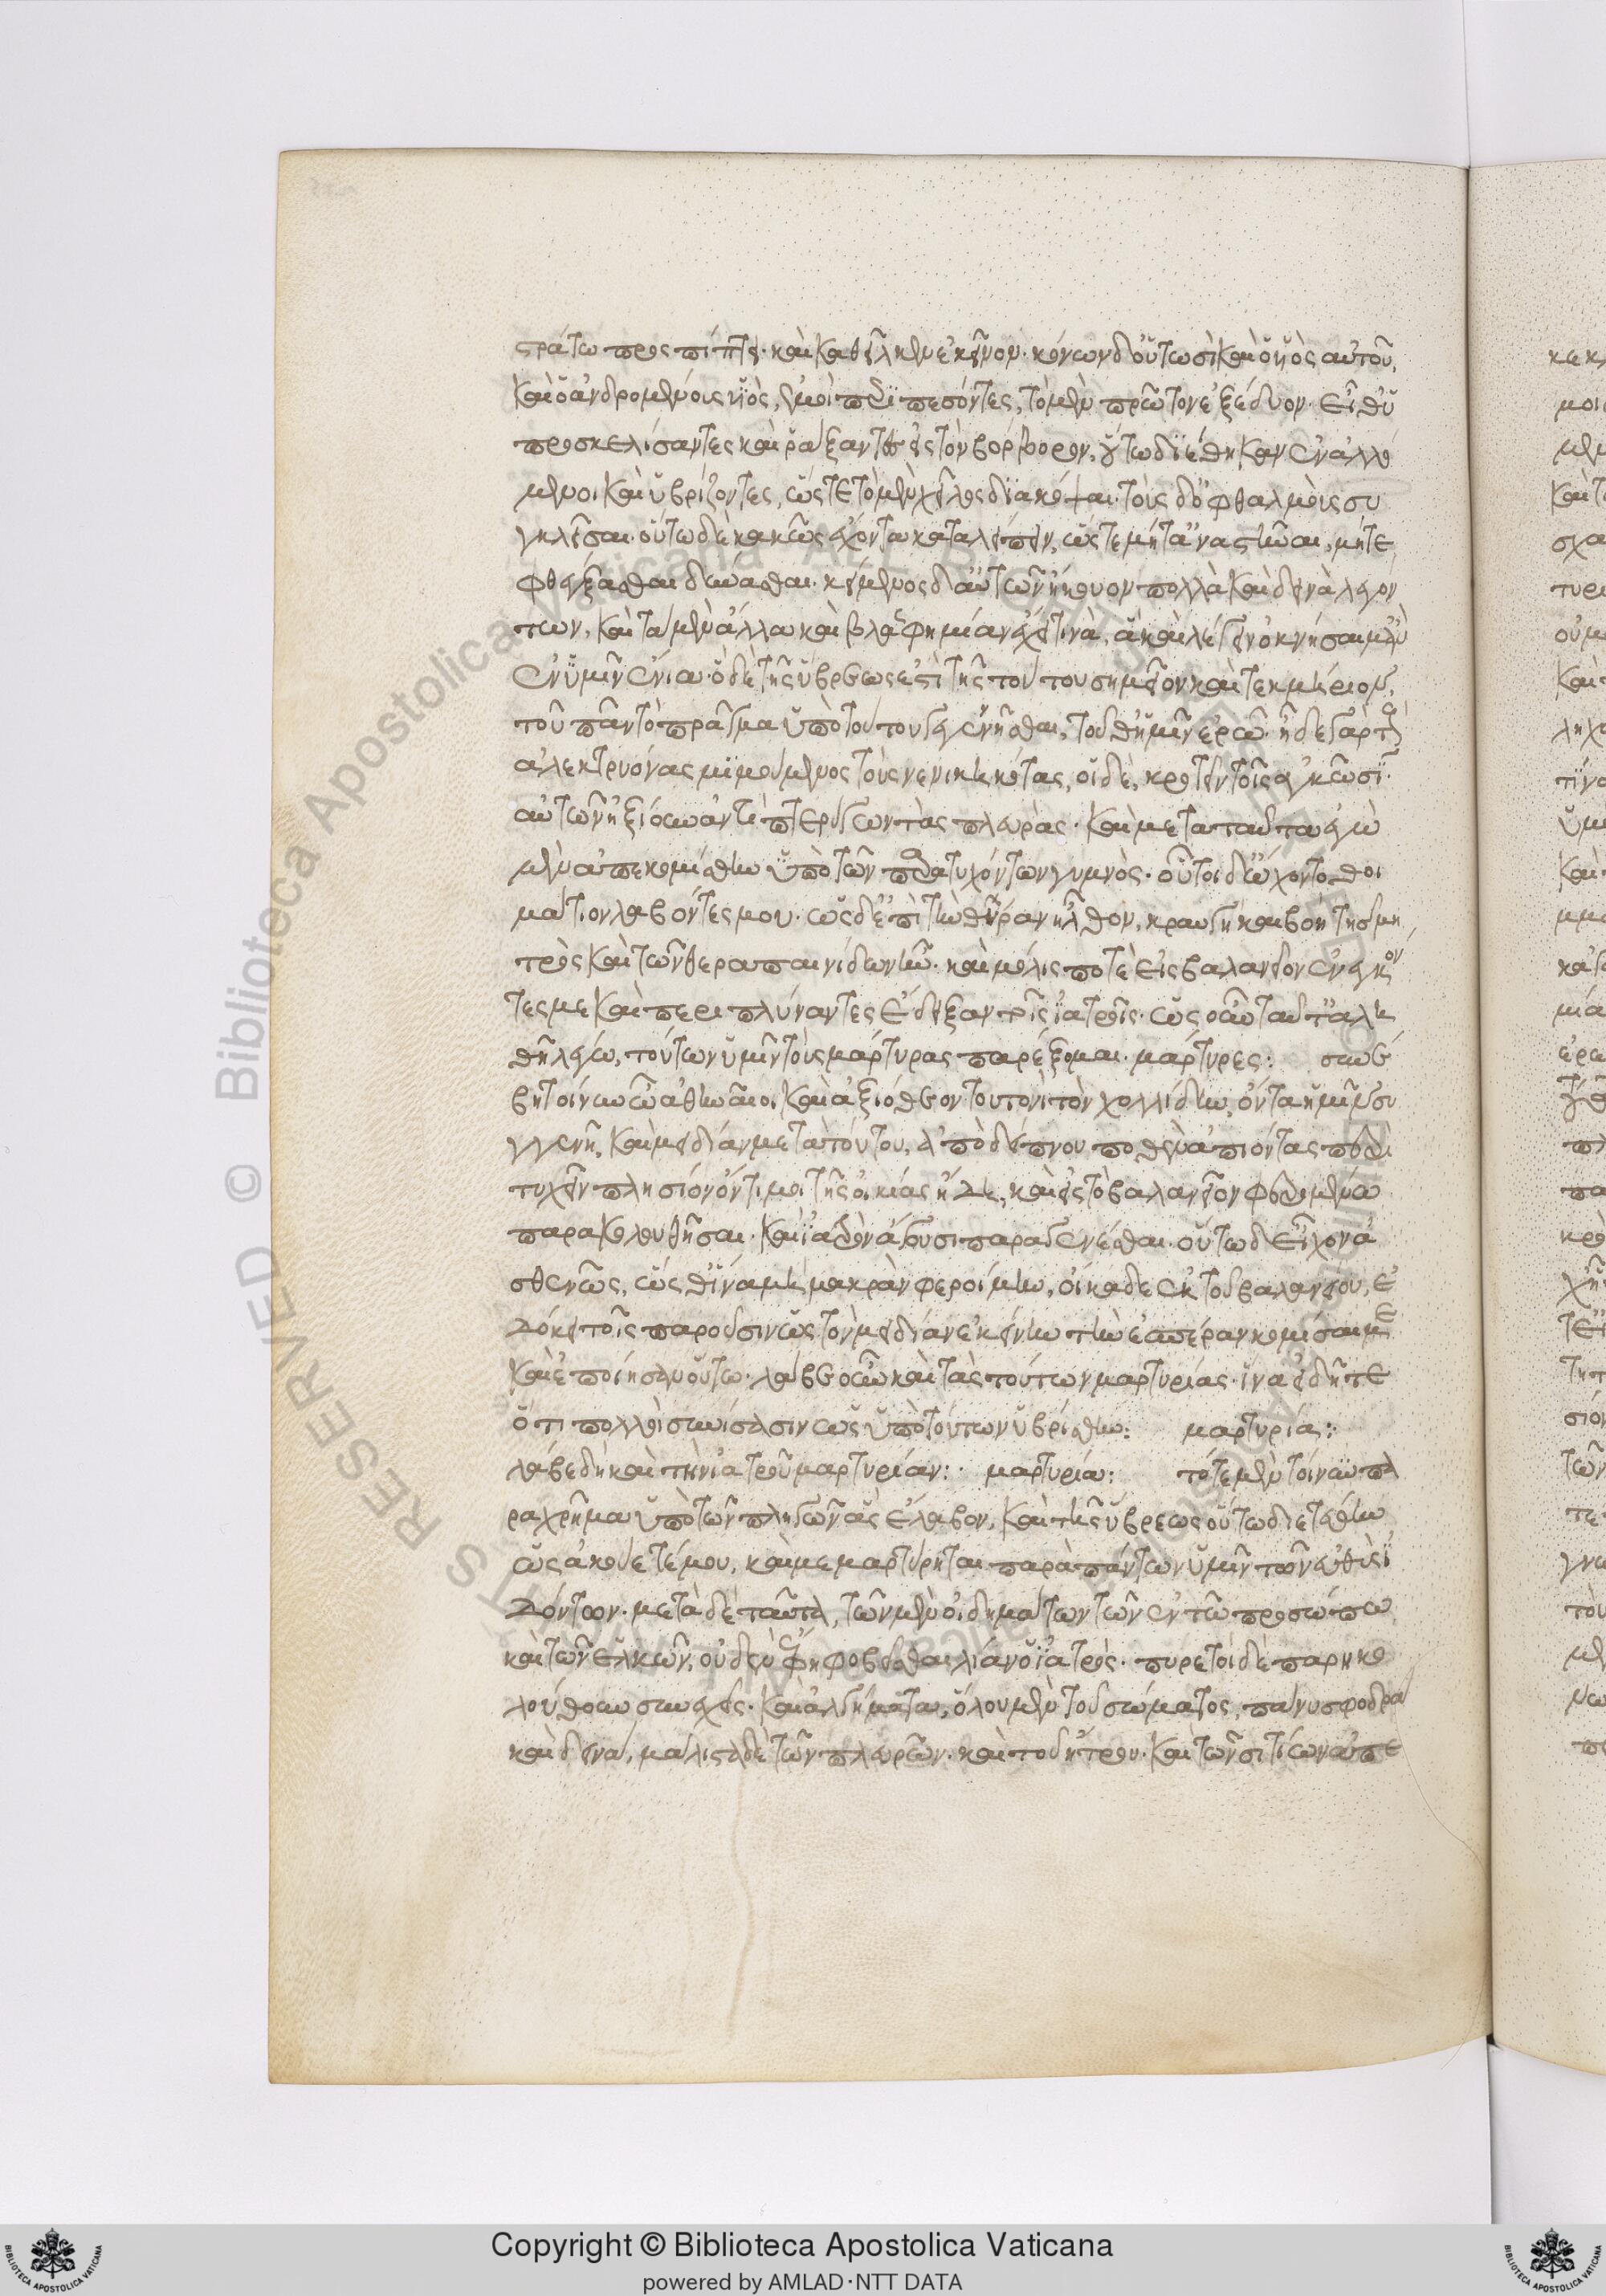 στράτω προσπίπτει· καὶ καθεῖλκμεν ἐκεῖνον· κόνων δ' οὑτωσὶ καὶ ὁ ὑὸς αὐτοῦ,
καὶ ὁ ἀνδρομένους υἱὸς, ἐμοὶ περιπεσόντες, τὸ μὲν πρῶτον ἐξέδυον· εἶθ' ὑ
ποσκελίσαντες καὶ ῥάξαντες εἰς τὸν βόρβορον, οὕτω διέθηκαν ἐναλλό
μενοι καὶ ὑβρίζοντες, ὥστε τὸ μὲν χεῖλος διακόψαι· τοὺς δ' ὀφθαλμοὺς συ
γκλεῖσαι· οὕτω δὲ κακῶς ἔχοντα καταλιπεῖν, ὥστε μήτ' ἀναστῆναι, μήτε
φθέγξασθαι δύνασθαι· κείμενος δ' αὐτῶν ἤκουον πολλὰ καὶ δεινὰ λεγόν
των, καὶ τὰ μὲν ἄλλα καὶ βλασφημίαν ἔχει τινὰ, ἃ καὶ λέγειν ὀκνήσαιμ' ἂν
ἐν ὑμῖν ἔνια· ὃ δὲ τῆς ὕβρεώς ἐστι τῆς τούτου σημεῖον καὶ τεκμήριον,
τοῦ πᾶν τὸ πρᾶγμα ὑπὸ τούτου γεγενῆσθαι, τοῦθ' ὑμῖν ἐρῶ· ᾖδε γὰρ τοὺς
ἀλεκτρυόνας μιμούμενος τοὺς νενικηκότας, οἱ δὲ, κροτεῖν τοῖς ἀγκῶσι
αὐτὸν ἠξίουν ἀντὶ πτερύγων τὰς πλευράς· καὶ μετὰ ταῦτα ἐγὼ
μὲν ἀπεκομίσθην ὑπὸ τῶν παρατυχόντων γυμνός· οὗτοι δ' ᾤχοντο θοι
μάτιον λαβόντες μου· ὡς δ' ἐπὶ τὴν θύραν ἦλθον, κραυγὴ καὶ βοὴ τῆς μη
τρὸς καὶ τῶν θεραπαινίδων ἦν· καὶ μόλις ποτὲ εἰς βαλανεῖον ἐνεγκόν
τες με καὶ περιπλύναντες ἔδειξαν τοῖς ἰατροῖς· ὡς οὖν ταῦτ' ἀλη
θῆ λέγω, τούτων ὑμῖν τοὺς μάρτυρας παρέξομαι· μάρτυρες: συνέ
βη τοίνυν ὦ ἄνδρες ἀθηναῖοι καὶ εὐξίθεον τουτονὶ τὸν χολλίδην, ὄντα ἡμῖν συ
γγενῆ, καὶ μειδίαν μετὰ τούτου, ἀπὸ δείπνου ποθὲν ἀπιόντας περι
τυχεῖν πλησίον ὄντι μοι τῆς οἰκίας ἤδη, καὶ εἰς τὸ βαλανεῖον φερομένῳ
παρακολουθῆσαι· καὶ ἰατρὸν ἄγουσι παραγενέσθαι· οὕτω δ' εἶχον ἀ
σθενῶς, ὥσθ' ἵνα μὴ μακρὰν φεροίμην, οἴκαδε ἐκ τοῦ βαλανείου, ἐ
δόκει τοῖς παροῦσιν ὡς τὸν μειδίαν ἐκείνην τὴν ἑσπέραν κομίσαι με
καὶ ἐποίησαν οὕτω· λάβε οὖν καὶ τὰς τούτων μαρτυρίας· ἵν' εἰδῆτε
ὅτι πολλοὶ συνίσασιν ὡς ὑπὸ τούτων ὑβρίσθην: μαρτυρία:
λάβε δὴ καὶ τὴν ἰατροῦ μαρτυρίαν: μαρτυρία: τότε μὲν τοίνυν πα
ραχρῆμα ὑπὸ τῶν πληγῶν ἃς ἔλαβον, καὶ τῆς ὕβρεως οὕτω διετέθην
ὡς ἀκούετέ μου, καὶ μεμαρτύρηται παρὰ πάντων ὑμῖν τῶν εὐθὺς ἰ
δόντων· μετὰ δὲ ταῦτα, τῶν μὲν οἰδημάτων τῶν ἐν τῷ προσώπῳ
καὶ τῶν ἑλκῶν, οὐδὲν ἔφη φοβεῖσθαι λίαν ὁ ἰατρός· πυρετοὶ δὲ παρηκο
λούθουν συνεχεῖς· καὶ ἀλγήματα, ὅλου μὲν τοῦ σώματος πάνυ σφοδρὰ
καὶ δεινὰ, μάλιστα δὲ τῶν πλευρῶν· καὶ τοῦ ἤτρου· καὶ τῶν σιτίων ἀπε